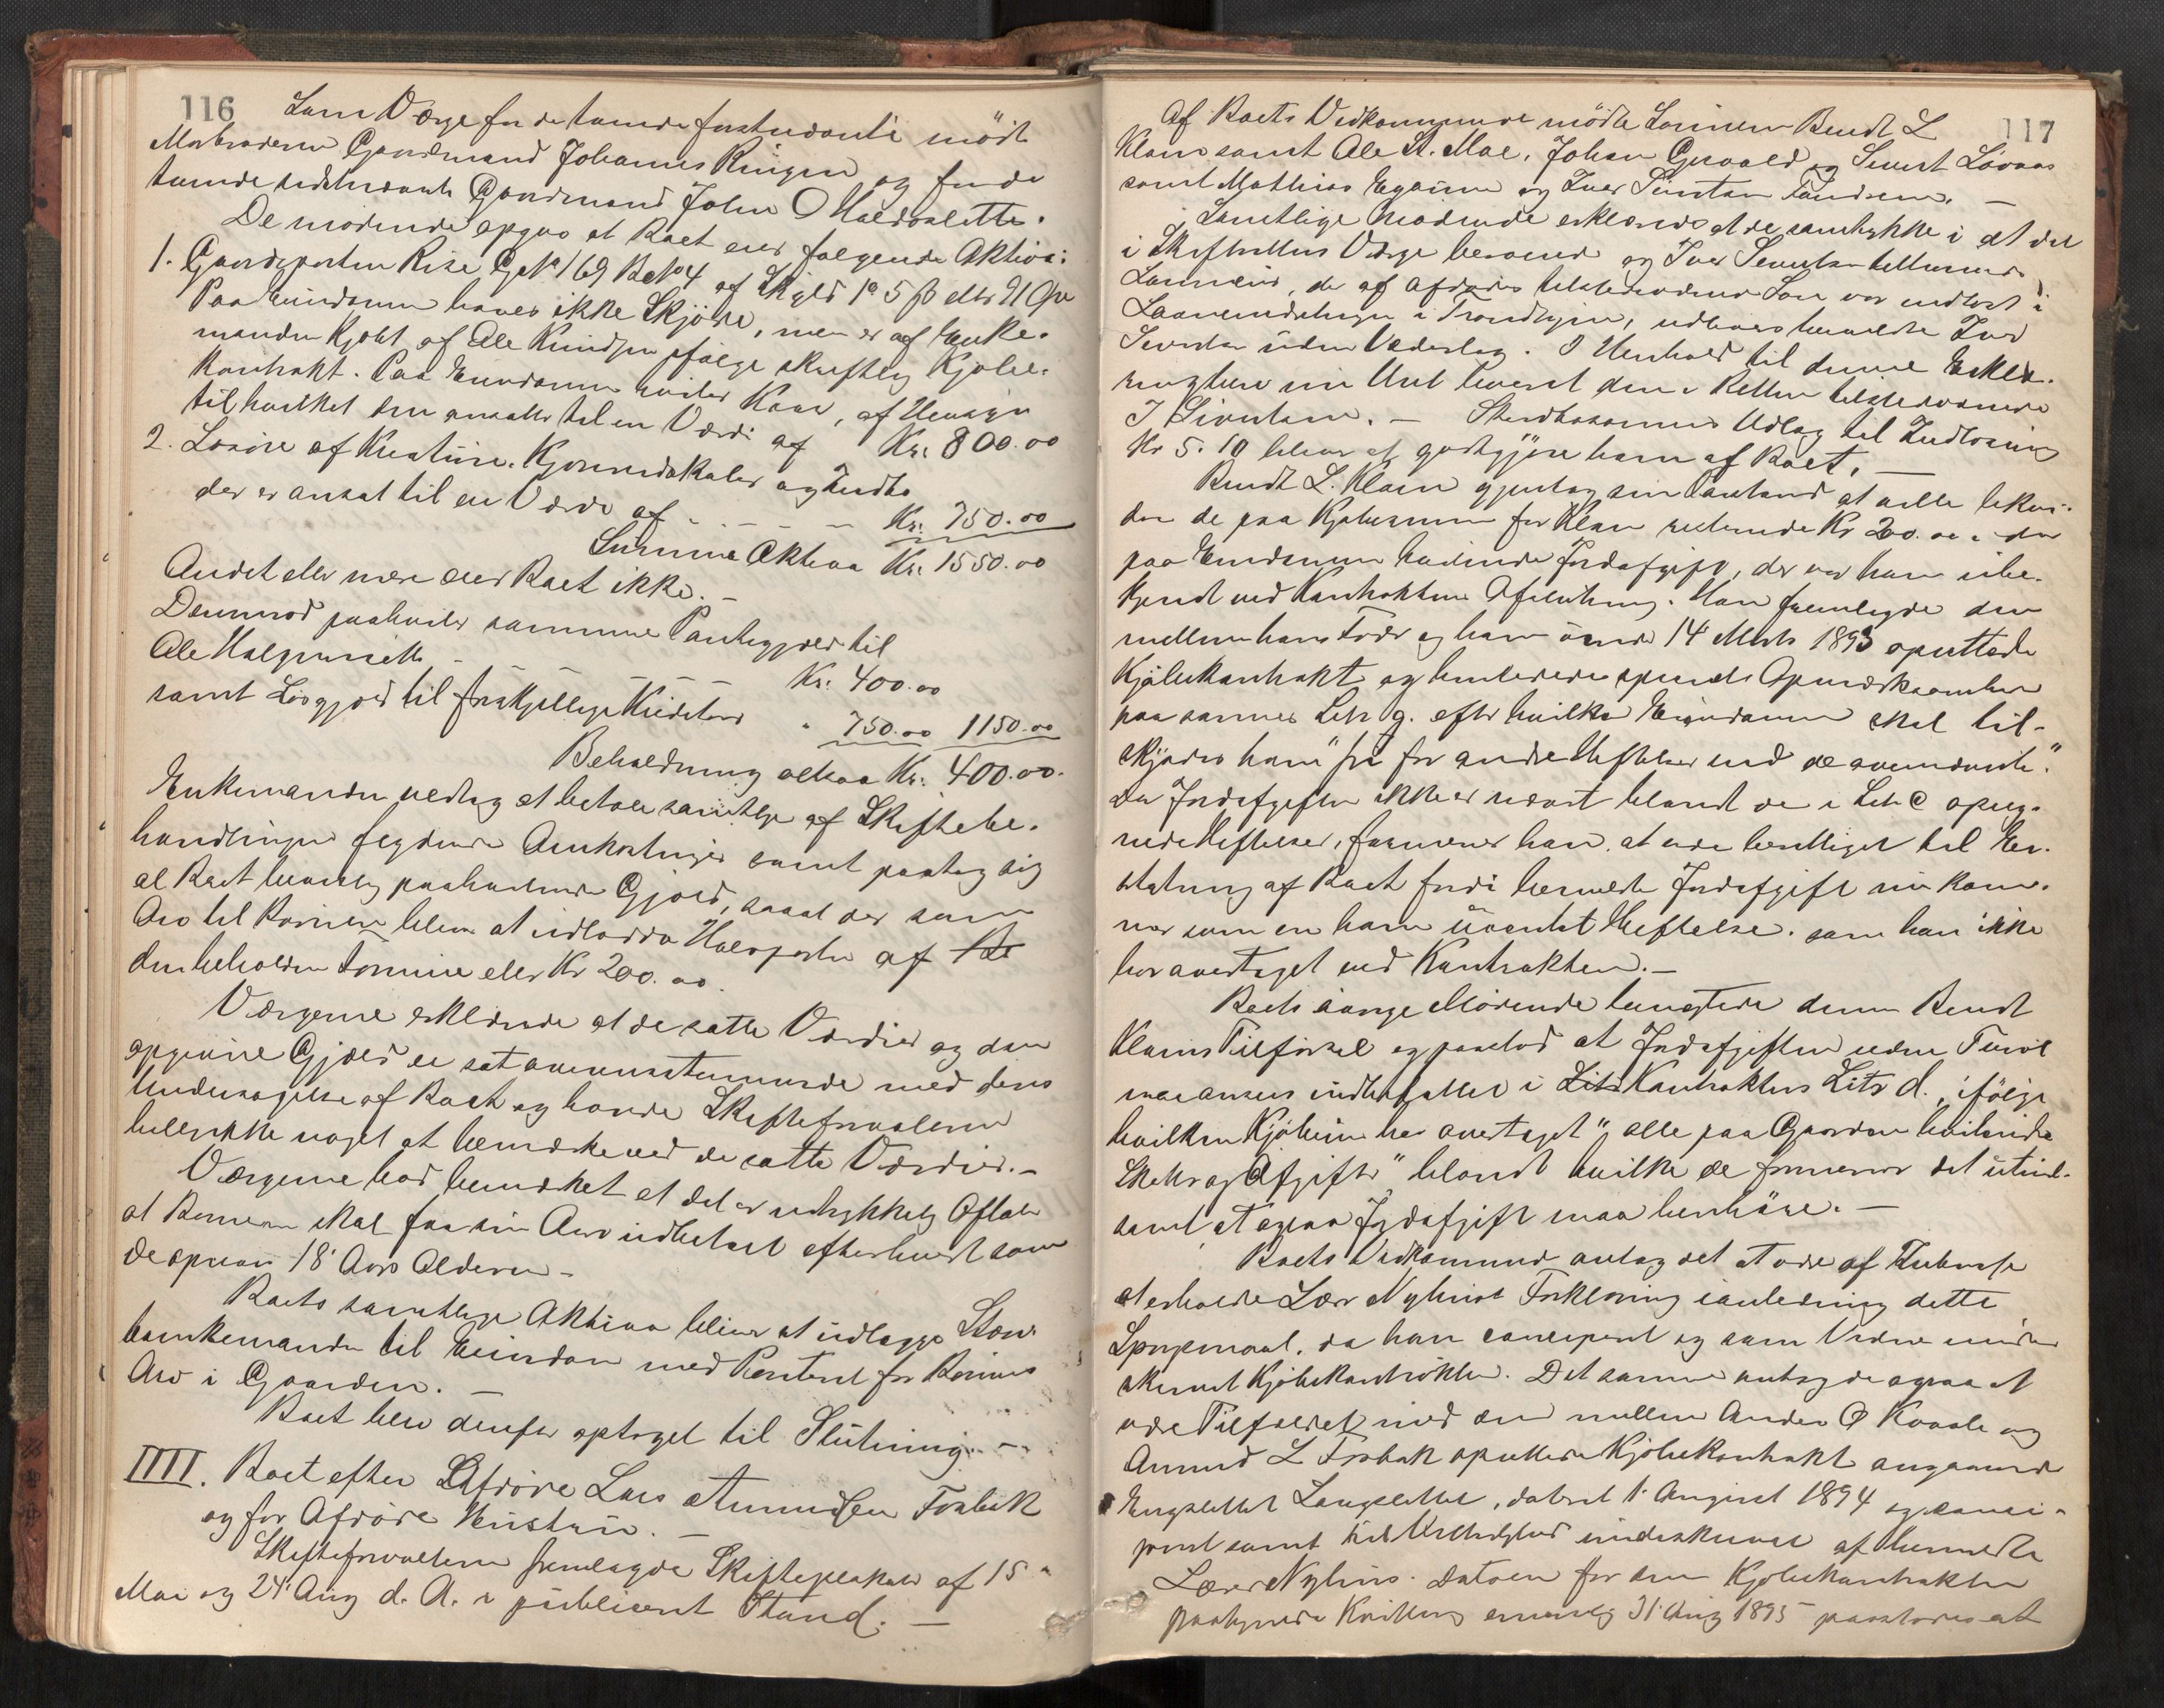 116
Som Værge for de tvende førstnævnte mødte
Morbroderen Gaardmand Johannes Ringen og for de
tvende sidstnævnte Gaardmand John O Haldoslette.
De mødende opgav at Boet eier følgende Aktiva:
1. Gaardparten Rise GNo 169 BNo 4 af Skyld 1 5 β eller 21 Øre
Paa Eiendommen haves ikke Skjøde, men er af Enke-
manden kjøbt af Ole Knudsen ifølge skriftlig Kjøbe-
kontrakt. Paa Eiendommen hviler Kaar, af Hensyn
til hvilket den ansattes til en Værdi af Kr: 800.00
2. Løsøre af Kreature, Kjøreredskaber og Indbo
der er ansat til en Værdi af - - - - Kr. 750.00
Summa Aktiva Kr. 1550.00
Andet eller mere eier Boet ikke. -
Derimod paahviler samme Pantegjæld til
Ole - - - Kr: 400.00
samt Løsgjæld til forskjellige Kreditorer " 750.00 1150.00
Beholdning altsaa Kr. 400.00.
Enkemanden vedtog at betale samtlige af Skiftebe-
handlingen flydende Omkostninger samt paatog sig
al Boet paahvilende Gjæld, saaat der som
Arv til Børnene bliver at udlodde Halvparten af
den beholdne Formue eller Kr 200.00.
Værgerne erklærede at de satte Værdier og den
opgivne Gjæld er sat overensstemmende med deres
Undersøgelse af Boet og havde Skifteforvalteren
heller ikke noget at bemærke ved de satte Værdier. -
Værgerne bad bemærket at det er udtrykkelig Aftale
at Børnene skal faa sin Arv udbetalt efterhvert som
de opnaar 18 Aars Alderen -
Boets samtlige Aktiva bliver at udlægge
Enkemanden til Eiendom med Panteret for Børnenes
Arv i Gaarden. -
Boet blev derefter optaget til Slutning. -
IIII. Boet efter Afdøde Lars Amundsen Forbak
og før Afdøde Hustru. -
Skifteforvalteren fremlagde Skifteplakater af 15
Mai og 24 Aug d. A. i publiceret Stand. -
117
Af Boets Vedkommende mødte Sønnen Bendt L
Klom samt Ole St. Moe, Johan Gravold og Sivert Løvaas
samt Mathias Eggan og Iver Sivertsen -
Samtlige Mødende erklærede at de samtykke i at det
i Skifterettens Værge beroende og Iver Sivertsen tilhørende
Laanebevis, der af Afdødes tilstedeværende Søn var indløst i
Laaneindretningen i Trondhjem, udleveres bemeldte Iver
Sivertsen uden Vederlag. I Henhold til denne Erklæ-
ring blev Uhr leveret den i Retten tilstedeværende
I Sivertsen. - Udlæg til Indløsning
Kr 5.10 bliver at godtgjøre ham af Boet. -
Bendt L. Klom gjentog sin Paastand at ville likvi-
dere de paa Kjøbesummen for Klom resterende Kr 200.00 i den
paa Eiendommen hvilende Jordafgift, der var ham ube-
kjendt ved Kontraktens Afslutning. Han fremlagde den
mellem hans Fader og ham under 14 Marts 1893 oprettede
Kjøbekontrakt og henledede specielt Opmærksomheden
paa sammes Litr g. efter hvilken Eiendommen skal til-
skjødes ham "fri for andre Heftelser end de ovennævnte."
Da Jordafgiften ikke er nævnt blandt de i Litr C opreg-
nede Heftelser, formener han at være berettiget til Er-
statning af Boet fordi bemeldte Jordafgift nu kom-
mer som en ham uventet Heftelse, som han ikke
har overtaget ved Kontrakten. -
Boets øvrige Mødende benægtede denne Bendt
Kloms Tilførsel og paastod at Jordafgiften uden Tvivl
maa ansees indbefattet i Kontraktens Litr d., ifølge
hvilken Kjøberen har overtaget "alle paa Gaarden hvilende
Skatter og Afgifter" blandt hvilke de formener det utvivl-
somt at ogsaa Jordafgift maa henhøre. -
Boets Vedkommende antog det at være af Interesse
at erholde Lærer Nyhus's Forklaring i anledning dette
Spørgsmaal, da han har concipert og som Vidne under
skrevet Kjøbekontrakten. Det samme antog de ogsaa at
være Tilfældet med den mellem Anders O Kvaale og
Amund L Forbak oprettede Kjøbekontrakt angaaende
Engslettet Langslettet, dateret 1 August 1894 og conci-
pert samt til Vitterlighed underskrevet af bemeldte
Lærer Nyhus. Datoen for den Kjøbekontrakten
paategnede Kvittering nemlig 31 Aug 1895 paastodes at